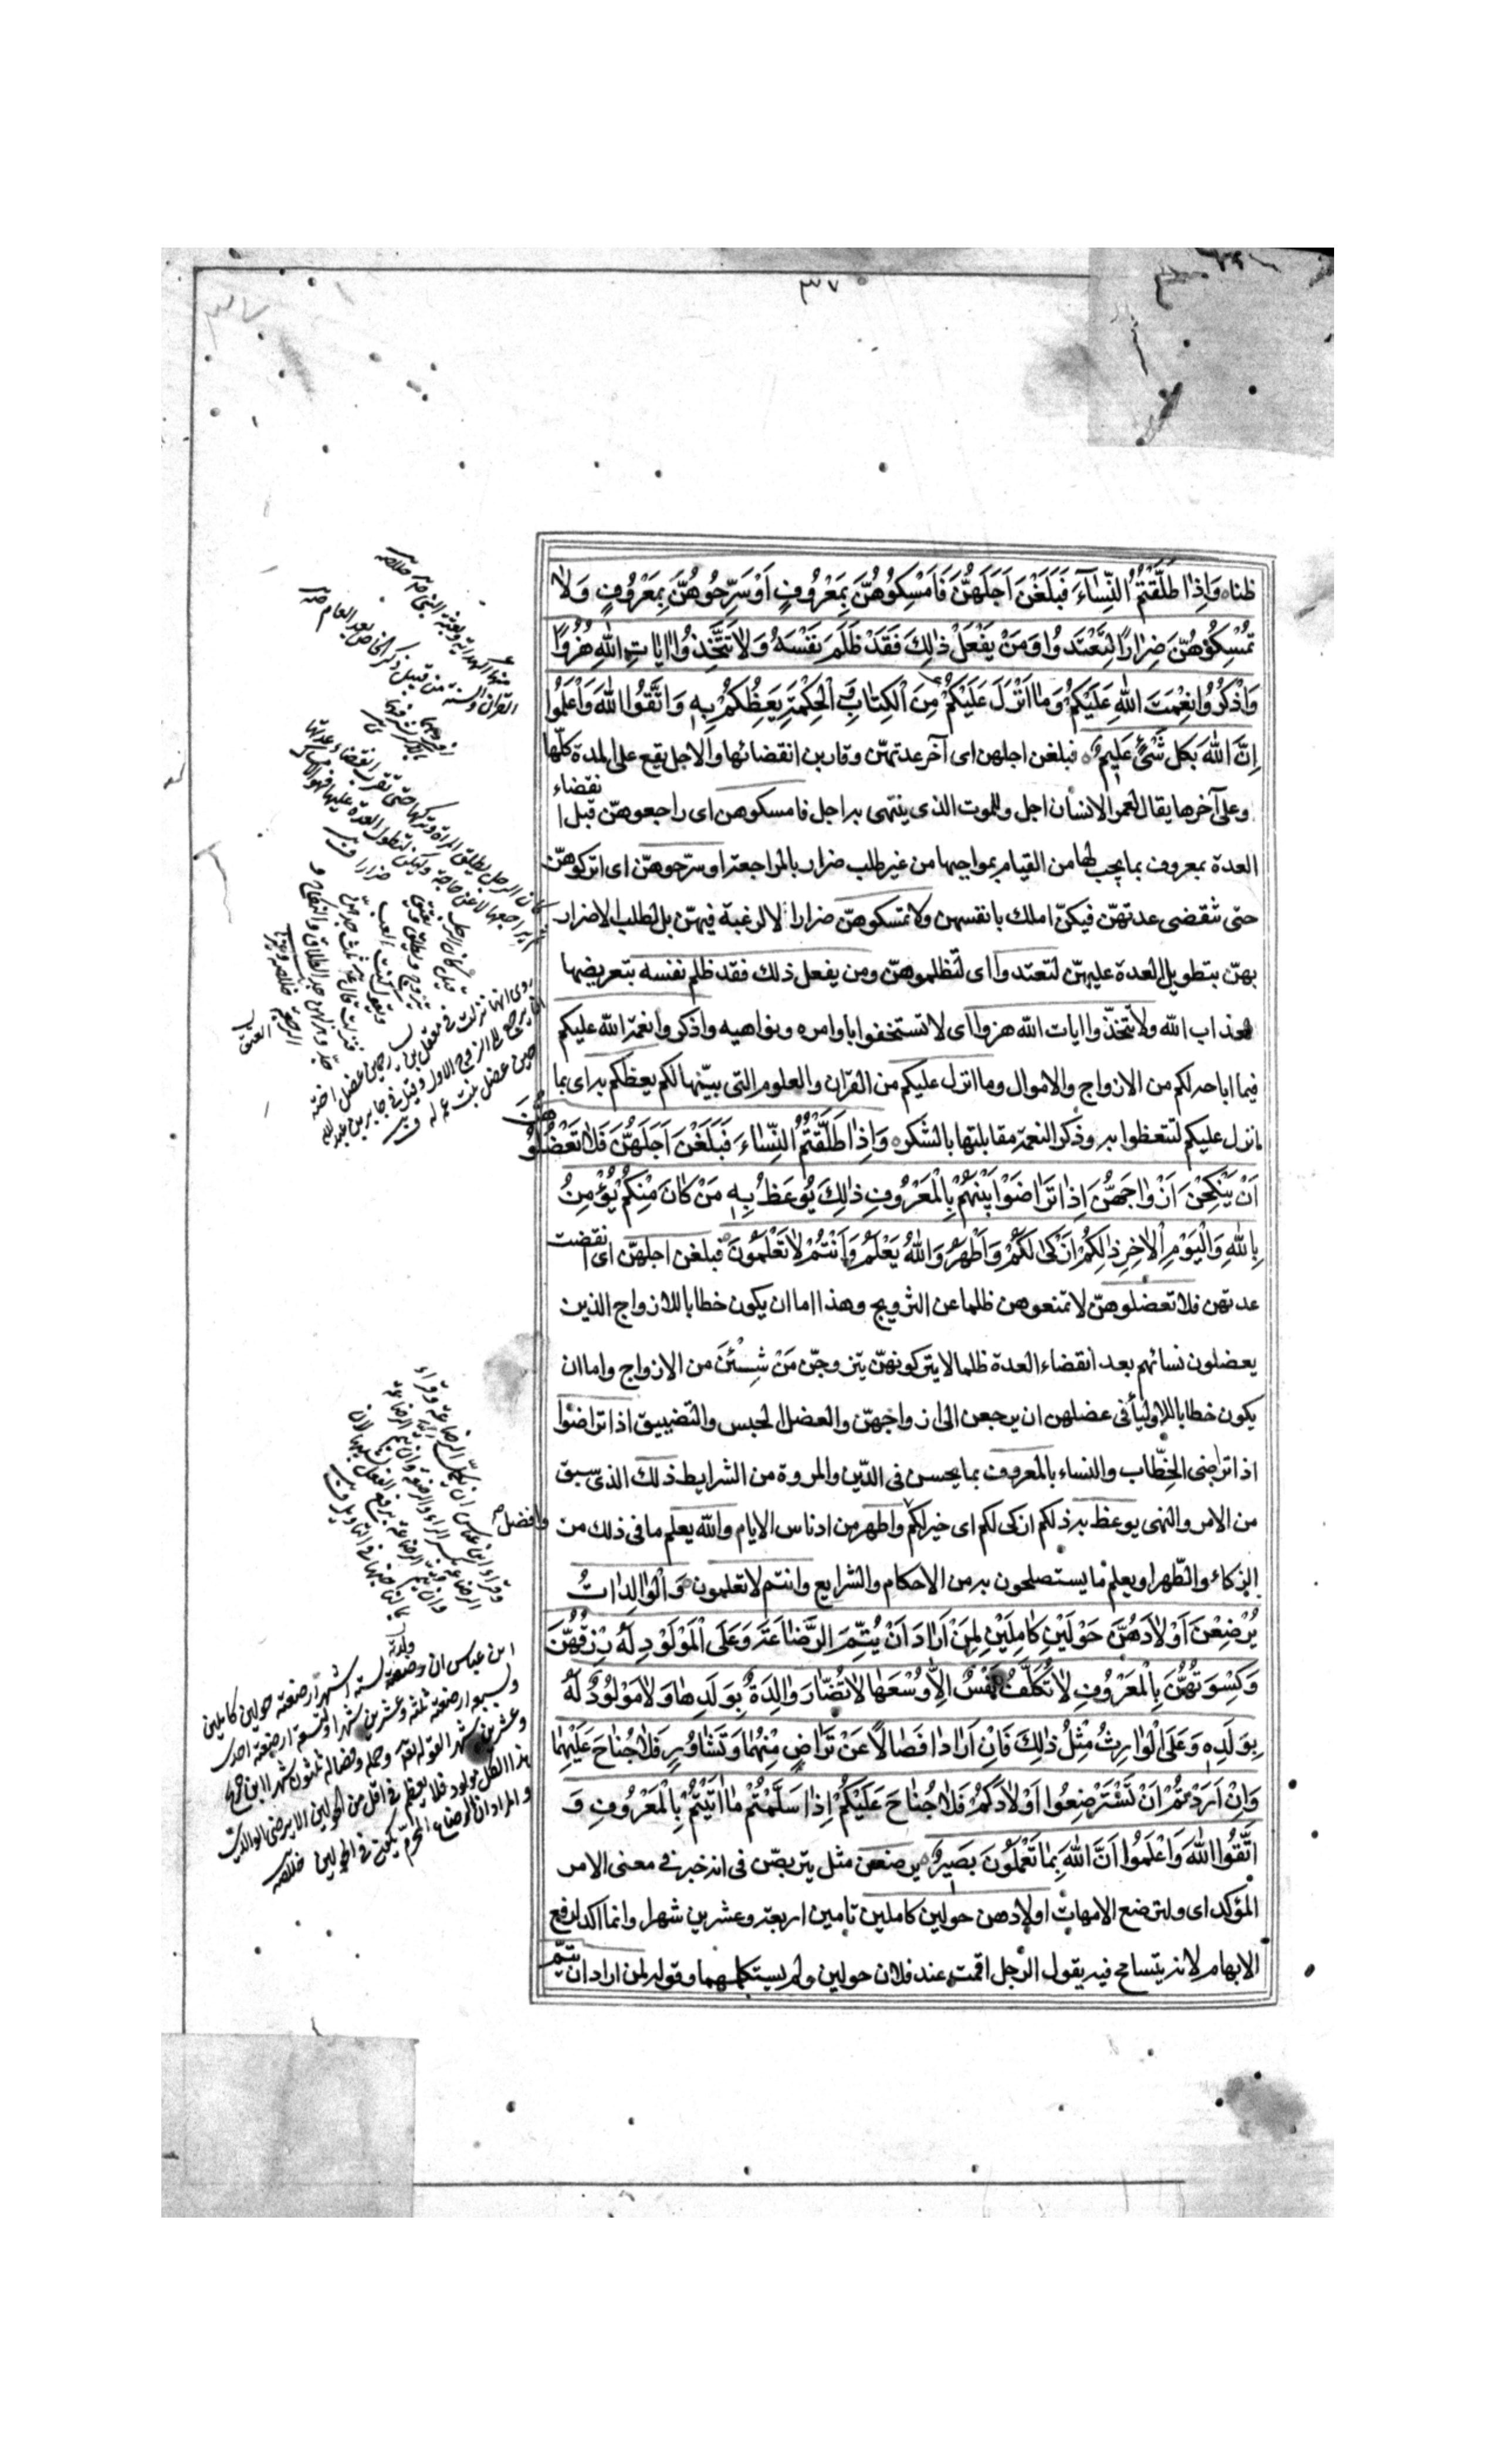 ٣٧
ظنا وَاِذٰا طَلَّقْتُمُ النِّسٰاءَ فَبَلَغْنَ اَجَلَهُنَّ فَاَمْسِكُوهُنَّ بِمَعْرُوفٍ اَوْ سَرِّحُوهُنَّ بِمَعْرُوفٍ وَلٰا
تُمْسِكُوهُنَّ ضِرٰارًا لِتَعْتَدُوا وَمَنْ يَفْعَلْ ذٰلِكَ فَقَدْ ظَلَمَ نَفْسَهُ وَلاٰ تَتَّخِذُوا اٰيٰاتِ اللّٰهِ هُزُوًا
وَاذْكُرُوا نِعْمَتَ اللّٰهِ عَلَيْكُمْ وَمٰا اَنْزَلَ عَلَيْكُمْ مِنَ الْكِتٰابِ وَالْحِكْمَةِ يَعِظُكُمْ بِهِ وَاتَّقُوا اللّٰهَ وَاعْلَمُوا
اِنَّ اللّٰهَ بِكُلِ شَىْءٍ عَلِيمٌ فبلغن اجلهن اى آخر عدتهنّ وقاربن انقضائها والاجل يقع على المدة كلّها
وعلى آخرها يقال لعمر الانسان اجل وللموت الذى ينتهى به اجل فامسكوهن اى راجعوهنّ قبل انقضاء
العدة بمعروف بما يجب لها من القيام بمواجبها من غير طلب ضرار بالمراجعة او سرّحوهنّ اى اتركوهنّ
حتى تنقضى عدتهنّ فيكنّ املك بانفسهن ولا تمسكوهنّ ضرارا لا لرغبة فيهنّ بل لطلب الاضرار
بهنّ بتطويل العدة عليهنّ لتعتدوا اى لتظلموهنّ ومن يفعل ذلك فقد ظلم نفسه بتعريضها
لعذاب الله ولا تتخذوا ايات الله هزوا اى لا تستخفوا باوامره ونواهيه واذكروا نعمة الله عليكم
فيما اباحه لكم من الازواج والاموال وما انزل عليكم من القرآن والعلوم التى بيّنها لكم يعظكم به اى بما
انزل عليكم لتتعظوا به وذكر النعمة مقابلتها بالشكر وَاِذٰا طَلَّقْتُمُ النِّسٰاءَ فَبَلَغْنَ اَجَلَهُنَّ فَلاٰ تَعْضُلُوهُنَّ
اَنْ يَنْكِحْنَ اَزْوٰاجَهُنَّ اِذٰا تَرٰاضَوْا بَيْنَهُمْ بِالْمَعْرُوفِ ذٰلِكَ يُوعَظُ بِهِ مَنْ كٰانَ مِنْكُمْ يُؤْمِنُ
بِاللّٰهِ وَالْيَوْمِ الْاٰخِرِ ذٰلِكُمْ اَزْكىٰ لَكُمْ وَاَطْهَرُ وَاللّٰهُ يَعْلَمُ وَاَنْتُمْ لاٰ تَعْلَمُونَ فبلغن اجلهنّ اى انقضت
عدتهن فلا تعضلوهنّ لا تمنعوهن ظلما عن التزويج وهذا اما ان يكون خطابا للازواج الذين
يعضلون نسائهم بعد انقضاء العدة ظلما لا يتركونهنّ يتزوجنّ مَنْ شِئْنَ من الازواج واما ان
يكون خطابا للاولياء فى عضلهن ان يرجعن الى ازواجهنّ والعضل الحبس والتضييق اذا تراضوا
اذا تراضى الخطّاب والنساء بالمعروف بما يحسن فى الدّين والمروة من الشرايط ذلك الذى سبق
من الامر والنهى يوعظ به ذلكم ازكى لكم اى خير لكم وافضل واطهر من ادناس الاثام والله يعلم ما فى ذلك من
الزكاء والطّهر او يعلم ما يستصلحون به من الاحكام والشرايع وانتم لا تعلمون وَالْوٰالِدٰاتُ
يُرْضِعْنَ اَوْلاٰدَهُنَّ حَوْلَيْنِ كٰامِلَيْنِ لِمَنْ اَرٰادَ اَنْ يُتِمَّ الرَّضٰاعَةَ وَعَلَى الْمَوْلُودِ لَهُ رِزْقُهُنَّ
وَكِسْوَتُهُنَّ بِالْمَعْرُوفِ لاٰ تُكَلَّفُ نَفْسٌ اِلّٰا وُسْعَهٰا لاٰ تُضٰارَّ وٰالِدَةٌ بِوَلَدِهٰا وَلاٰ مَوْلُودٌ لَهُ
بِوَلَدِهِ وَعَلَى الْوٰارِثِ مِثْلُ ذٰلِكَ فَاِنْ اَرٰادٰا فِصٰالاً عَنْ تَرٰاضٍ مِنْهُمٰا وَتَشٰاوُرٍ فَلاٰ جُنٰاحَ عَلَيْهِمٰا
وَاِنْ اَرَدْتُمْ اَنْ تَسْتَرْضِعُوا اَوْلاٰدَكُمْ فَلاٰ جُنٰاحَ عَلَيْكُمْ اِذٰا سَلَّمْتُمْ مٰا اٰتَيْتُمْ بِالْمَعْرُوفِ وَ
اتَّقُوا اللّٰهَ وَاعْلَمُوا اَنَّ اللّٰهَ بِمٰا تَعْمَلُونَ بَصِيرٌ يرضعن مثل يتربصّن فى انه خبر فى معنى الامر
المؤكد اى ولترضع الامهات اولادهن حولين كاملين تامين اربعة وعشرين شهرا وانما اكد لرفع
الابهام لانه يتسامح فيه يقول الرجل اقمت عند فلان حولين ولم يستكملهما وقوله لمن اراد ان يتمّ
روى انها نزلت فى معقل بن يسار حين عضل اخته
ان يرجع الى الزوج الاول وقيل فى جابر بن عبد الله
حين عضل بنت عم له
ابن عباس ان وضعته لستة اشهر ارضعته حولين كاملين
ولسبعة ارضعته ثلثة وعشرين شهرا ولتسعة ارضعته احد
وعشرين شهرا لقوله تعالى وحمله وفصاله ثلثون شهرا